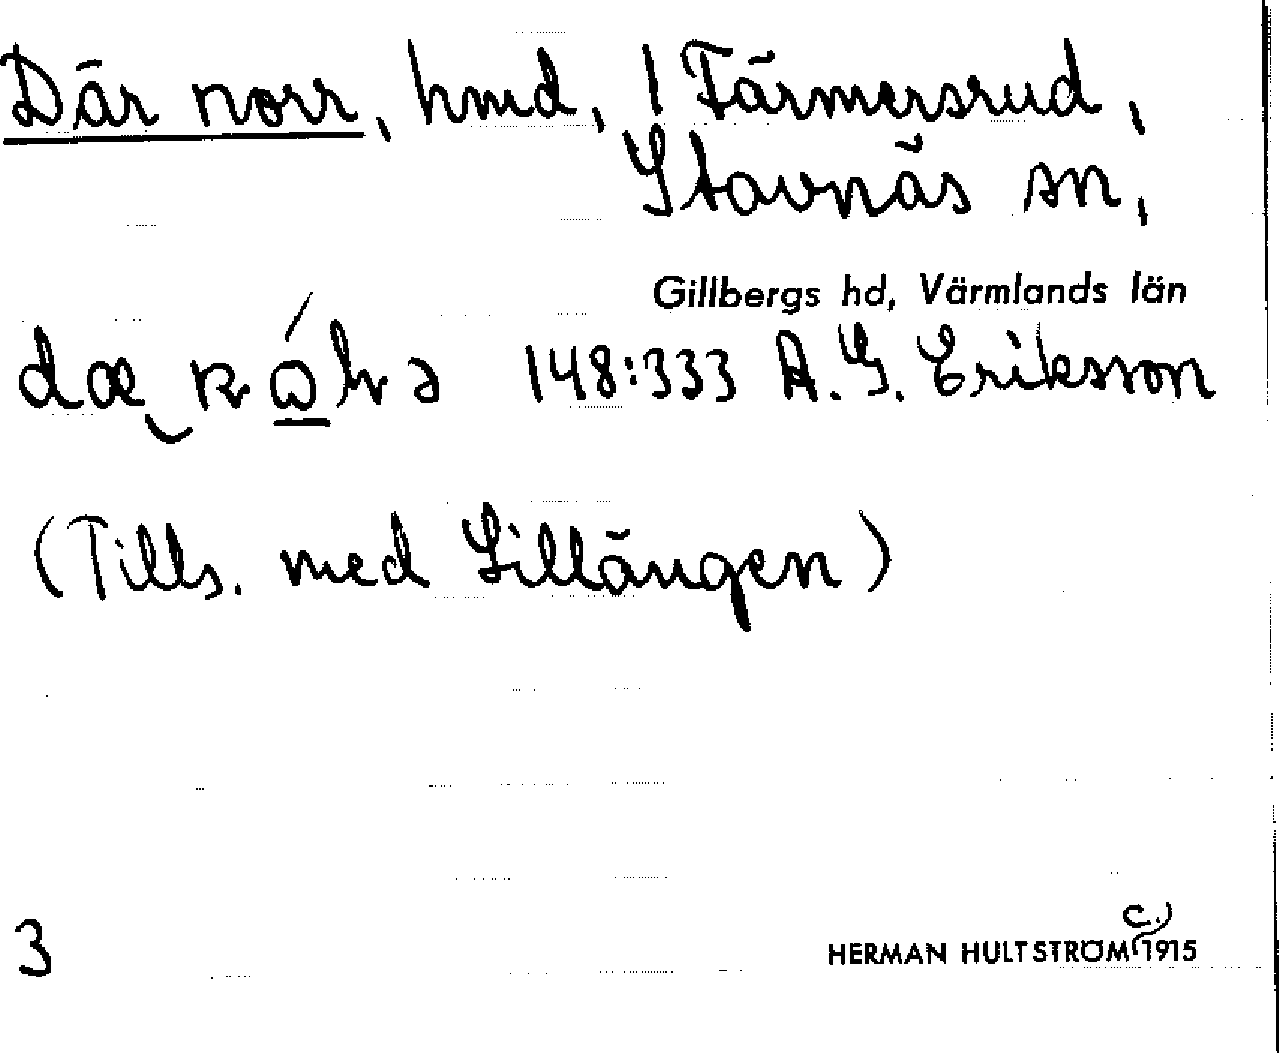 Där norr, hmd, 1 Färmersrud,
Stavnäs sn,
Gillbergs hd, Värmlands län
148:333 A. G. Eriksson
(Tills. med Lillängen)
3
HERMAN HULTSTRÖM (c.) 1915